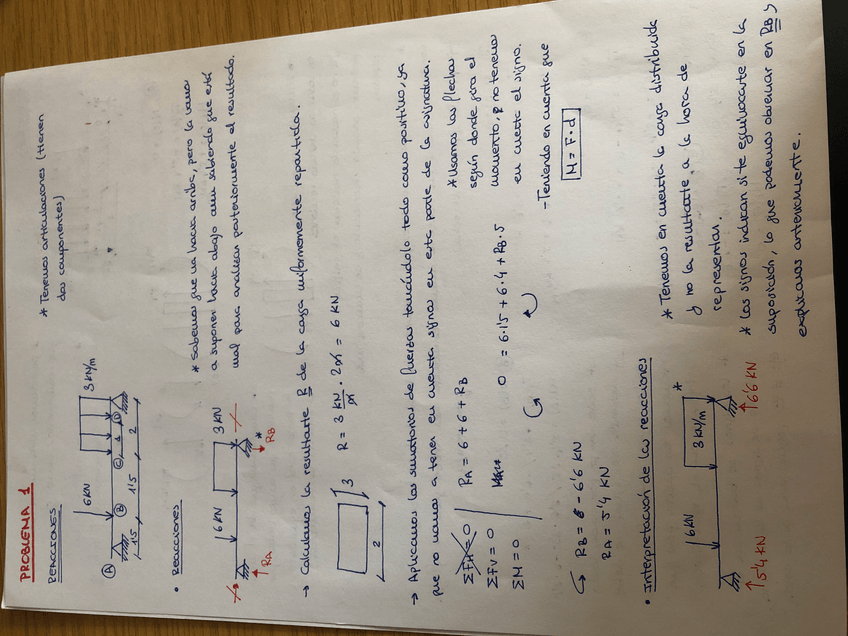 PROBLEMA 1
REACCIONES
* Tenemos articulaciones (tienen
dos componentes)
6KN
3 KN/m
A
B
C
D
1'5
1'5
2
• Reacciones
* Sabemos que va hacia arriba, pero la vamos
a suponer hacia abajo aun sabiendo que está
mal para analizar posteriormente el resultado.
6 KN
3 KN
RA
RB
*
→ Calculamos la resultante R de la carga uniformemente repartida.
3
2
R = 3 KN/m · 2m = 6 KN
→ Aplicamos los sumatorios de fuerzas tomándolo todo como positivo, ya
que no vamos a tener en cuenta signos en esta parte de la asignatura.
ΣFH = 0
ΣFV = 0
ΣM = 0
RA = 6 + 6 + RB
0 = 6·1'5 + 6·4 + RB·5
* Usamos las flechas
según donde gira el
momento, no tenemos
en cuenta el signo.
- Teniendo en cuenta que
M = F·d
RB = - 6'6 KN
RA = 5'4 KN
• Interpretación de las reacciones
6 KN
3 KN/m
*
5'4 KN
6'6 KN
* Tenemos en cuenta la carga distribuida
y no la resultante a la hora de
representar.
* Los signos indican si te equivocaste en la
suposición, lo que podemos observar en RB y
explicamos anteriormente.